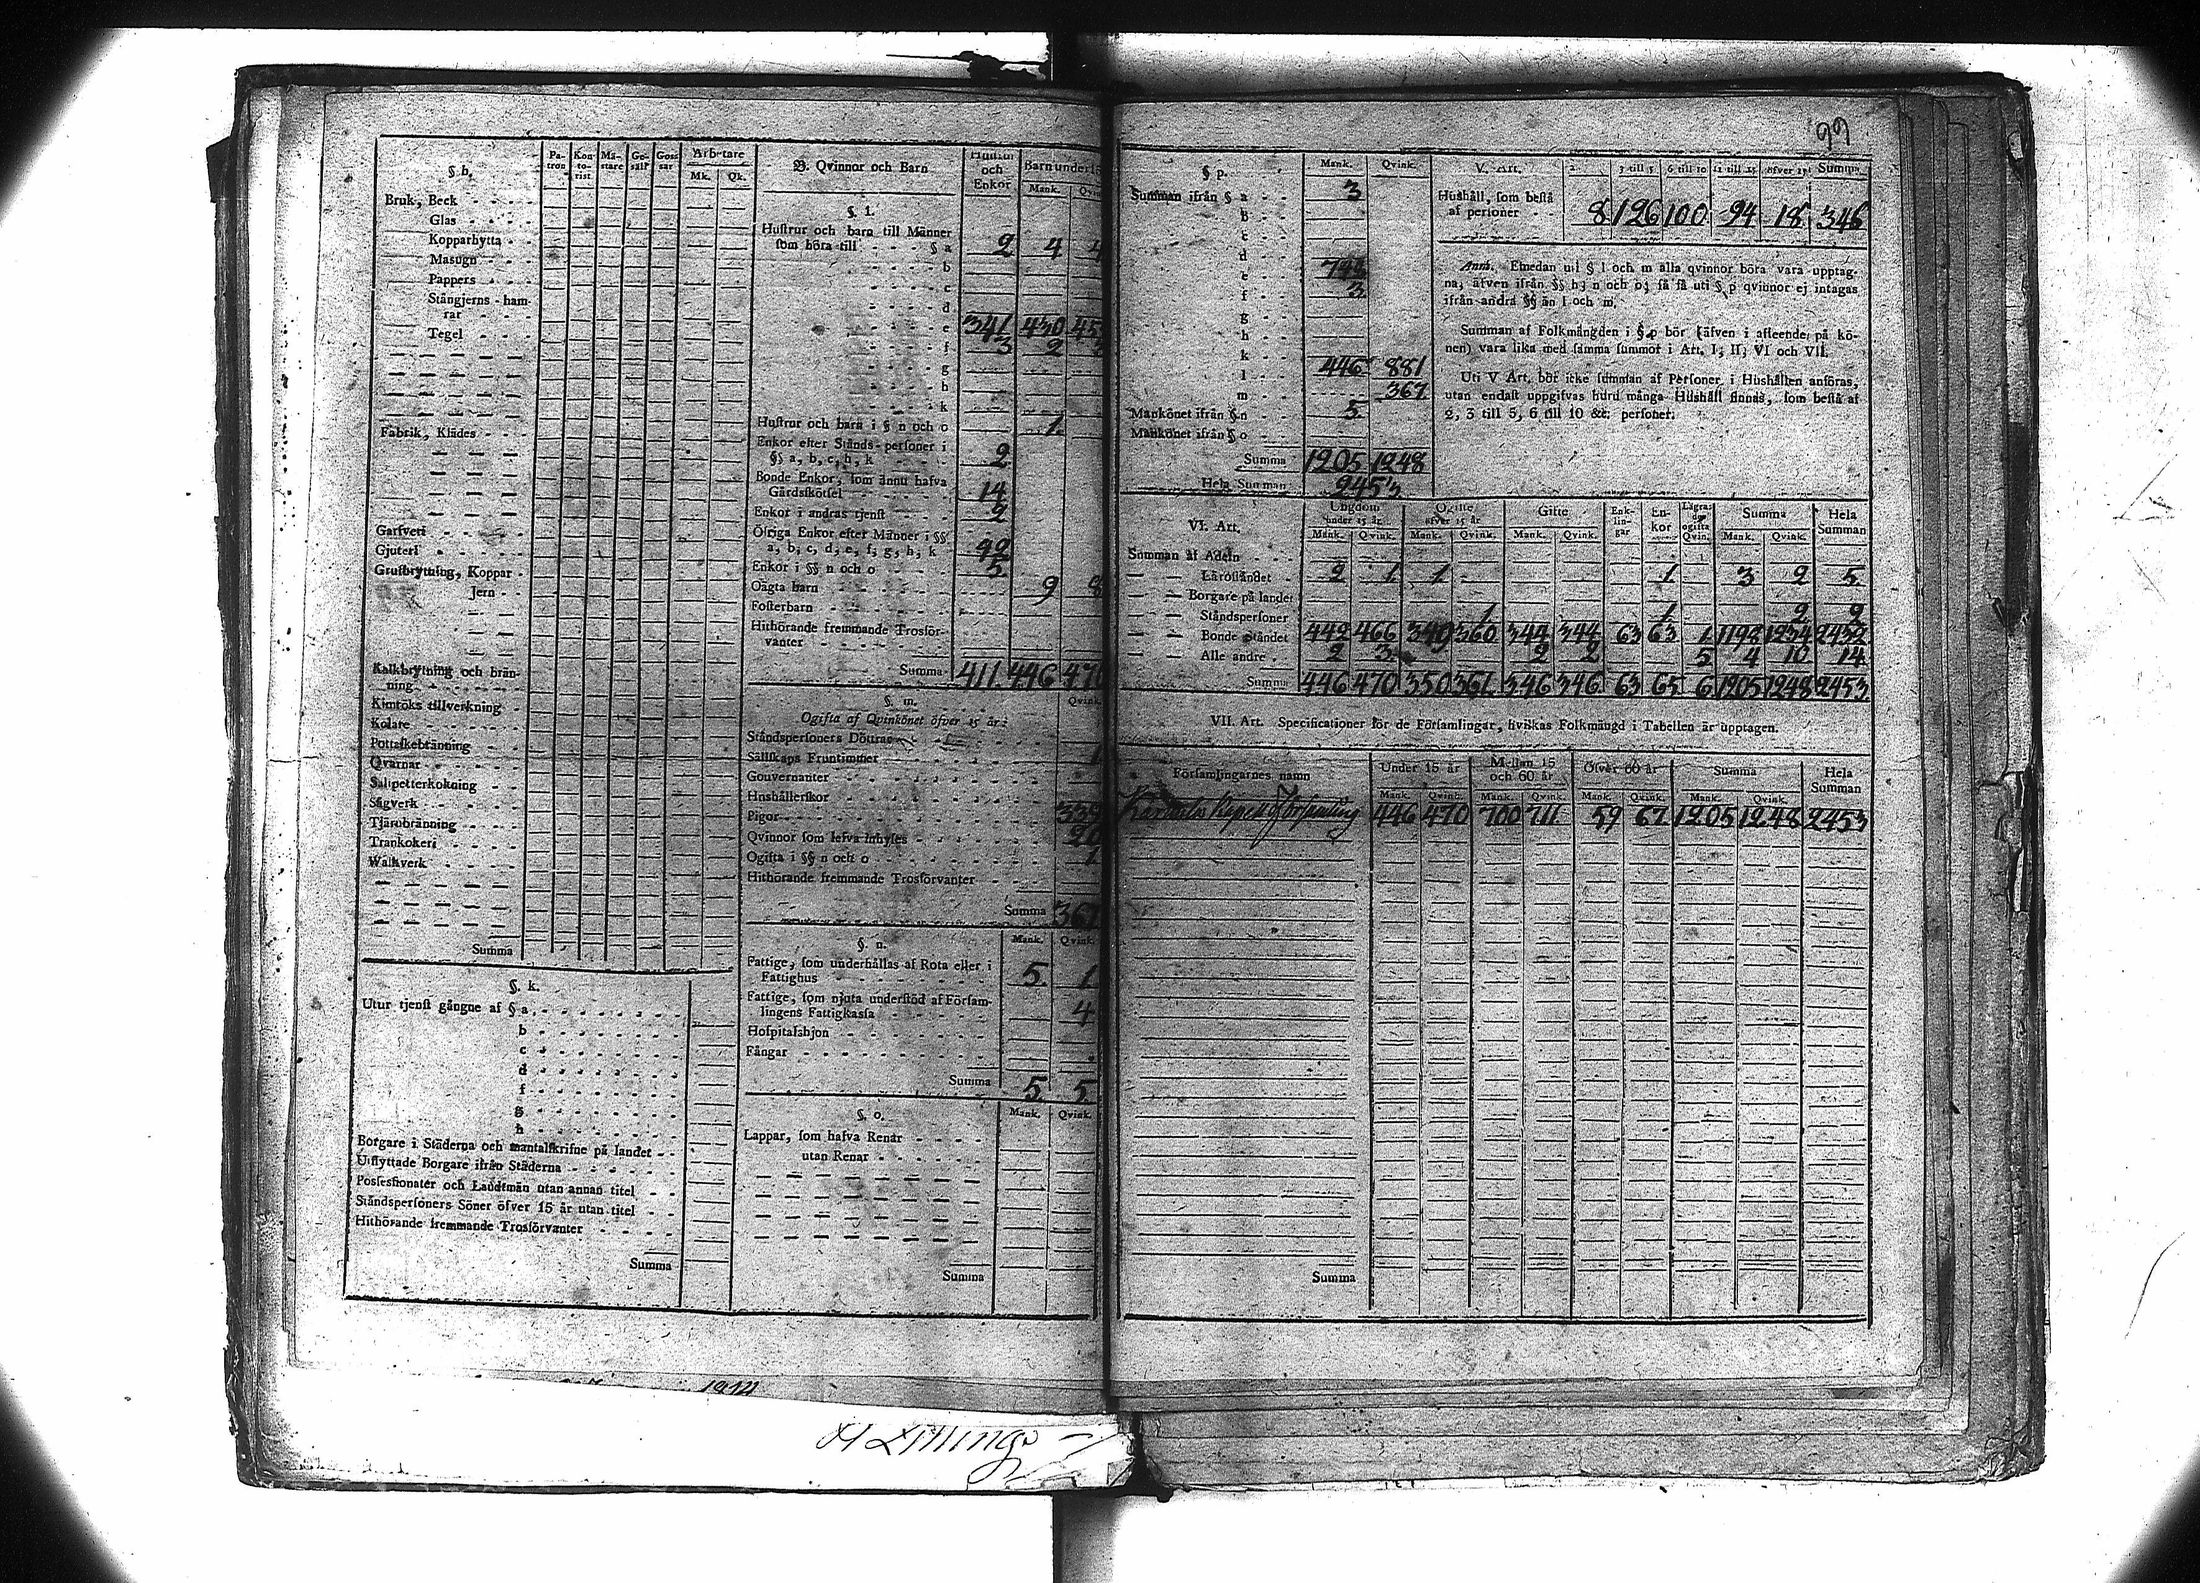 § h.
Pa-tron
Kon-to-rist
Mä-stare
Ge-säll
Goss sar
Arbetare
Mk. Qk.
Bruk, Beck
Glas
Kopparhytta
Masugn
Pappers
Stångjerns-ham-
rar
Tegel
Fabrik, Klädes
Garfveri
Gjuteri
Grufbrytning, Koppar
Jern
Kalkbrytning och brän-
ning
Kimröks tillverkning
Kolare
Pottaskebränning
Qvarnar
Salpetterkokning
Sågverk
Tjärubränning
Trankokeri
Walkverk
Summa
§. k.
Utur tjenst gångne af § a
b
c
d
f
g
h
Borgare i Städerna och mantalskrifne på landet
Utflyttade Borgare ifrån Städerna
Possessionater och Landtmän utan annan titel
Ståndspersoners Söner öfver 15 år utan titel
Hithörande fremmande Trosförvanter
Summa
B. Qvinnor och Barn
Hustrur och Enkor
Barn under 15
Mank. Qvink.
§. l.
Hustrur och barn till Männer
som höra till § a 2 4 4
b
c
d
e 341 430 45
f 3 2
g
h
k
Hustrur och barn i § n och o 1.
Enkor efter Stånds-personer i
§§ a, b, c, h, k 2
Bonde Enkor, som ännu hafva
Gårdsskötsel 14
Enkor i andras tjenst 2
Öfriga Enkor efter Männer i §§
a, b, c, d, e, f, g, h, k 42
Enkor i §§ n och o 5.
Oägta barn 9 8
Fosterbarn
Hithörande fremmande Trosför-
vanter
Summa 411. 446 470
§. m. Qvink.
Ogifta af Qvinkönet öfver 15 år:
Ståndspersoners Döttrar
Sällskaps Fruntimmer 1
Gouvernanter
Hushållerskor
Pigor 339
Qvinnor som lefva inhyses 26
Ogifta i §§ n och o 1.
Hithörande fremmande Trosförvanter
Summa 367
§. n. Mank. Qvink.
Fattige, som underhållas af Rota eller i
Fattighus 5. 1.
Fattige, som njuta understöd af Försam-
lingens Fattigkassa 4
Hospitalshjon
Fångar
Summa 5. 5.
§. o. Mank. Qvink.
Lappar, som hafva Renar
utan Renar
Summa
99
§ p. Mank. Qvink.
Summan ifrån § a 3
b
c
d
e 748
f 3.
g
h
k
l 446 881
m 367.
Mankönet ifrån § n 5.
Mankönet ifrån § o
Summa 1205 1248
Hela Summan 2453
V. Art. 2. 3 till 5 6 till 10 11 till 15 öfver 15 Summa
Hushåll, som bestå
af personer 8 126 100 94 18 346
Anm. Emedan uti § l och m alla qvinnor böra vara upptag-
na, äfven ifrån §§ h, n och o; så få uti § p qvinnor ej intagas
ifrån andra §§ än l och m.
Summan af Folkmängden i § p bör (äfven i afseende på kö-
nen) vara lika med samma summor i Art. I, II, VI och VII.
Uti V Art. bör icke summan af Personer i Hushållen anföras,
utan endast uppgifvas huru många Hushåll finnas, som bestå af
2, 3 till 5, 6 till 10 &c. personer.
VI. Art.
Ungdom under 15 år
Ogifte öfver 15 år
Gifte
Enk-lin-gar
En-kor
Lägrade ogifta Qvin.
Summa
Hela Summan
Mank. Qvink. Mank. Qvink. Mank. Qvink. Mank. Qvink.
Summan af Adeln
Läroståndet 2 1. 1 1. 3 2 5.
Borgare på landet
Ståndspersoner 1. 1. 2 2
Bonde Ståndet 442 466 349 360 344 344 63 63 1 1198 1234 2432
Alle andre 2 3. 2 2 5 4 10 14
Summa 446 470 350 361. 346 346 63 65 6 1205 1248 2453
VII. Art. Specificationer för de Församlingar, hvilkas Folkmängd i Tabellen är upptagen.
Församlingarnes namn Under 15 år Mellan 15 och 60 år Öfver 60 år Summa Hela Summan
Mank. Qvink. Mank. Qvink. Mank. Qvink. Mank. Qvink.
Församling 446 470 700 711 59 67 1205 1248 2453
Summa